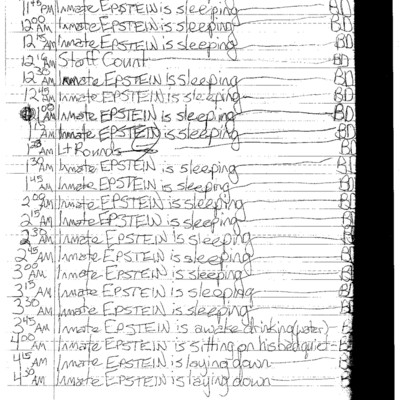 11 45 PM Inmate EPSTEIN is sleeping BD
12 00 AM Inmate EPSTEIN is sleeping BD
12 15 AM Inmate EPSTEIN is sleeping BD
AM Staff Count
12 30 AM Inmate EPSTEIN is sleeping BD
12 45 AM Inmate EPSTEIN is sleeping BD
1 00 AM Inmate EPSTEIN is sleeping BD
1 15 AM Inmate EPSTEIN is sleeping BD
AM Lt Rounds
1 30 AM Inmate EPSTEIN is sleeping BD
1 45 AM Inmate EPSTEIN is sleeping BD
2 00 AM Inmate EPSTEIN is sleeping BD
2 15 AM Inmate EPSTEIN is sleeping BD
2 30 AM Inmate EPSTEIN is sleeping BD
2 45 AM Inmate EPSTEIN is sleeping BD
3 00 AM Inmate EPSTEIN is sleeping BD
3 15 AM Inmate EPSTEIN is sleeping BD
3 30 AM Inmate EPSTEIN is sleeping BD
3 45 AM Inmate EPSTEIN is awake drinking (water) BD
4 00 AM Inmate EPSTEIN is sitting on his bed quiet BD
4 15 AM Inmate EPSTEIN is laying down BD
4 30 AM Inmate EPSTEIN is laying down BD